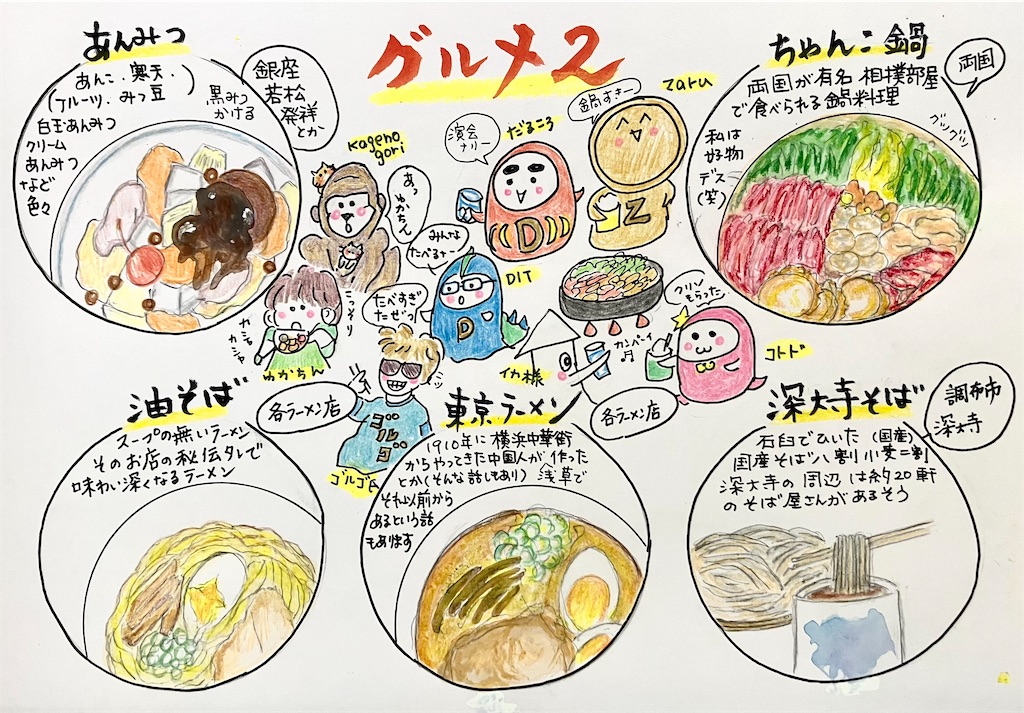 グルメ2
あんみつ
あんこ・寒天・
(フルーツ、みつ豆)
黒みつ
かける
白玉あんみつ
クリーム
あんみつ
など
色々
銀座
若松
発祥
とか
ちゃんこ鍋
両国
両国が有名 相撲部屋
で食べられる鍋料理
グツグツ
私は
好物
デス
(笑)
Kageno
gori
あっ
ゆかちん
宴会
ナリー
だるころ
鍋すきー
Zaru
みんな
たべるナー
DIT
こっそり
たべすぎ
たぜっ
カシャ
カシャ
ゆかちん
カンパーイ
プリン
もらった
イカ様
コトド
ゴルゴ
ゴルゴ
油そば
各ラーメン店
スープの無いラーメン
そのお店の秘伝タレで
味わい深くなるラーメン
東京ラーメン
各ラーメン店
1910年に横浜中華街
からやってきた中国人が作った
とか(そんな話もあり) 浅草で
それ以前から
あるという話
もあります
深大寺そば
調布市
深大寺
石臼でひいた (国産)
国産そば八割小麦二割
深大寺の周辺は約20軒
のそば屋さんがあるそう